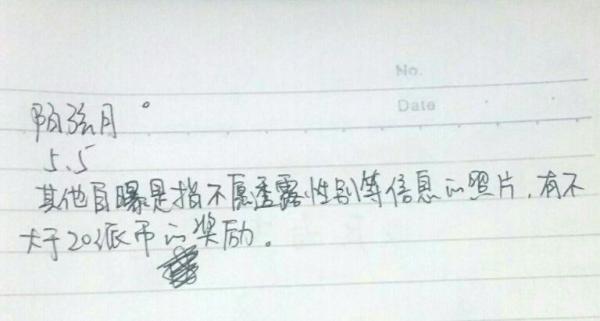 No.
Date
陌弦月。
5.5
其他自曝是指不愿透露性别等信息的照片,有不
大于20派币的奖励。